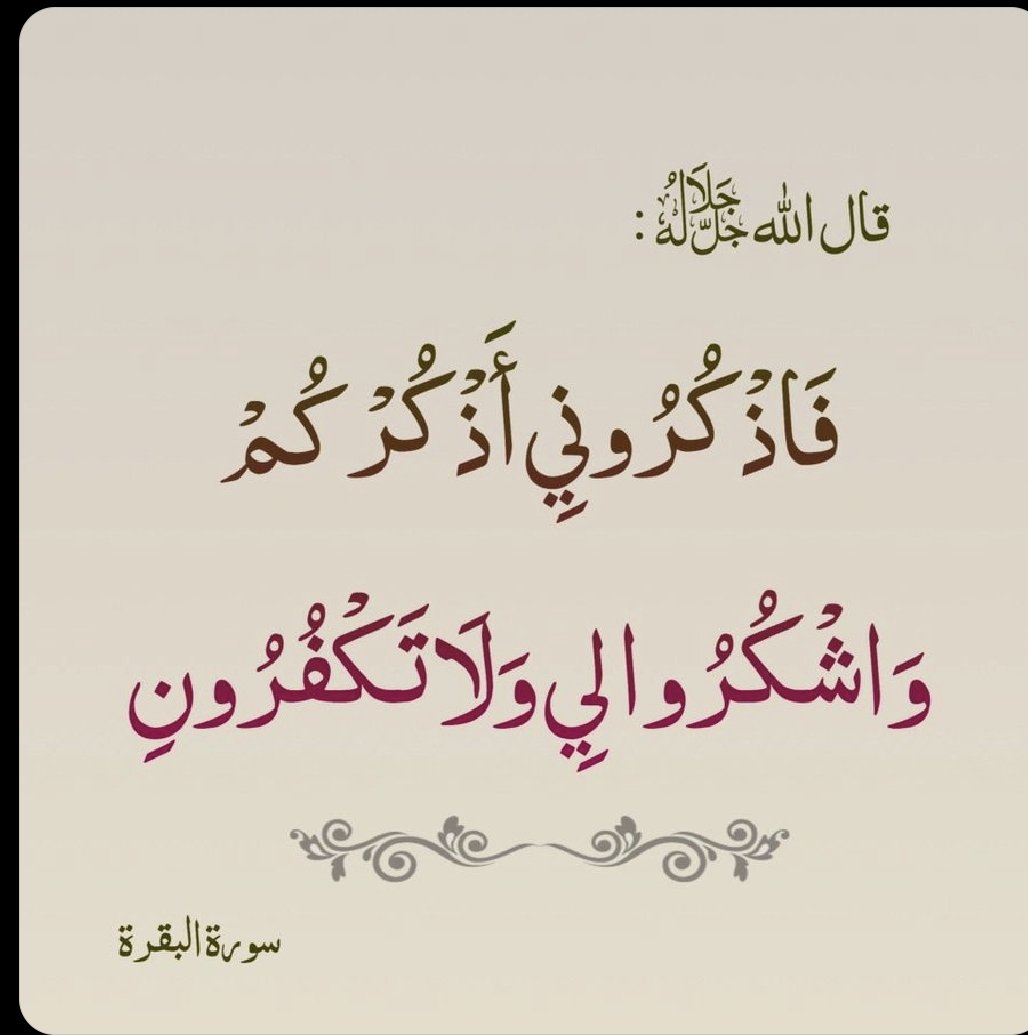 قال الله جَلَّ جَلَالُهُ :
فَاذْكُرُونِي أَذْكُرْكُمْ
وَاشْكُرُوا لِي وَلَا تَكْفُرُونِ
سورة البقرة